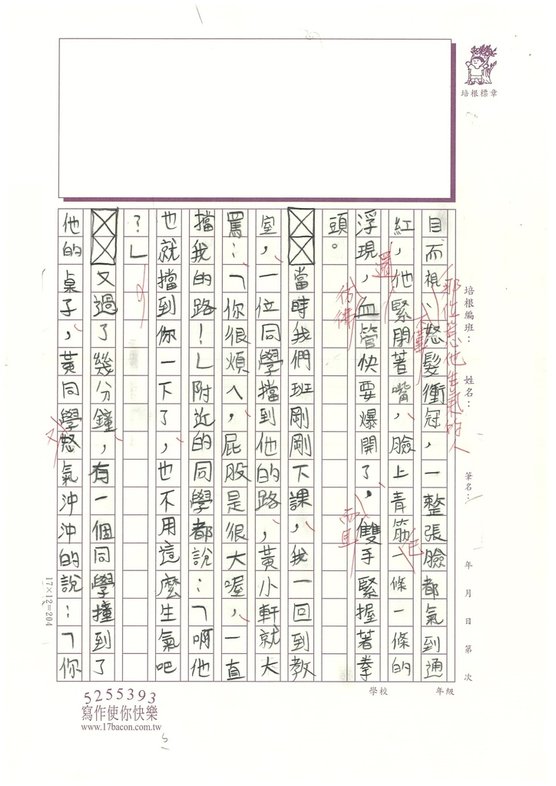 目而視，怒髮衝冠，一整張臉都氣到通
紅，他緊閉著嘴，臉上青筋一條一條的
浮現，血管快要爆開了，雙手緊握著拳
頭。
當時我們班剛剛下課，我一回到教
室，一位同學擋到他的路，黃小軒就大
罵：「你很煩ㄟ，屁股是很大喔，一直
擋我的路！」附近的同學都說：「啊他
也就擋到你一下了，也不用這麼生氣吧
？」
又過了幾分鐘，有一個同學撞到了
他的桌子，黃同學怒氣沖沖的說：「你
那位惹他生氣的人
彷彿
而且
又
培根標章
培根編班：
姓名：
筆名：
年 月 日 第 次
學校
年級
17×12=204
5255393
寫作使你快樂
www.17bacon.com.tw